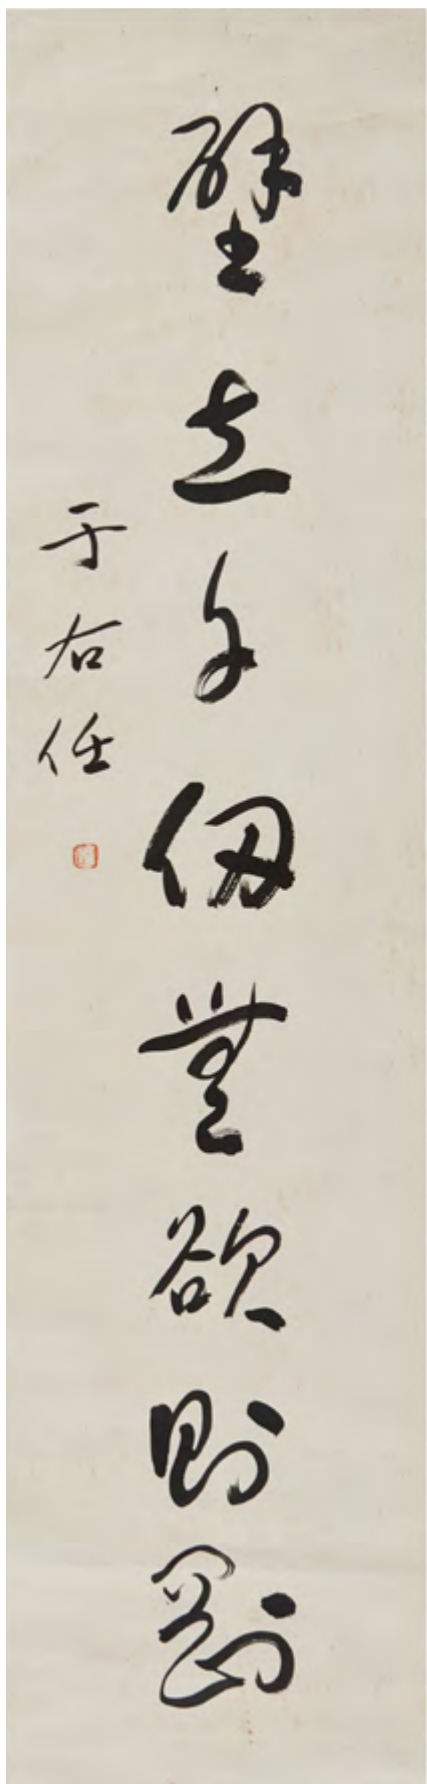 壁立千仞無欲則剛
于右任